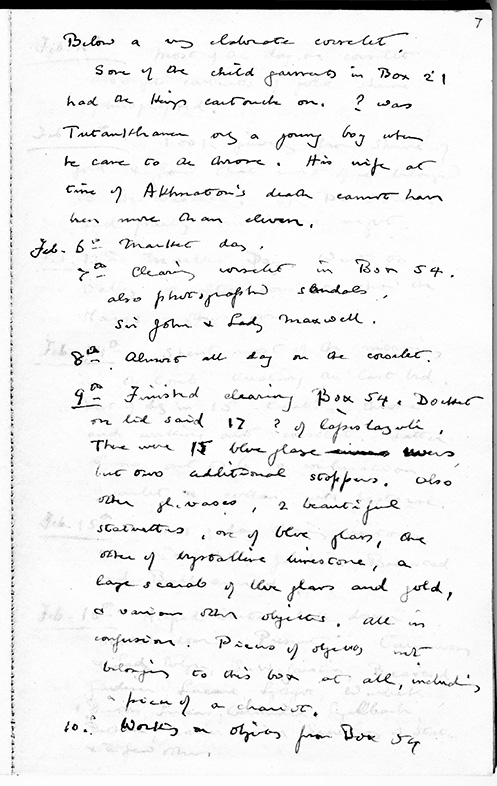 7
Below a very elaborate corselet.
Some of the child garments in Box 21
had the King's cartouche on. ? was
Tutankhamen only a young boy when
he came to the throne. His wife at
time of Akhnaton's death cannot have
been more than eleven.
Feb. 6th Market day.
7th Clearing corselet in Box 54.
also photographed sandals.
Sir John & Lady Maxwell.
8th. Almost all day on the corselet.
9th Finished clearing Box 54. Docket
on lid said 17 ? of lapis lazuli.
There were 15 blue glaze
but two additional stoppers. Also
other gl. vases, 2 beautiful
statuettes, one of blue glass, the
other of crystalline limestone, a
large scarab of blue glass and gold,
& various other objects. All in
confusion. Pieces of objects not
belonging to this box at all, including
piece of a chariot.
10th. Working on objects from Box 54